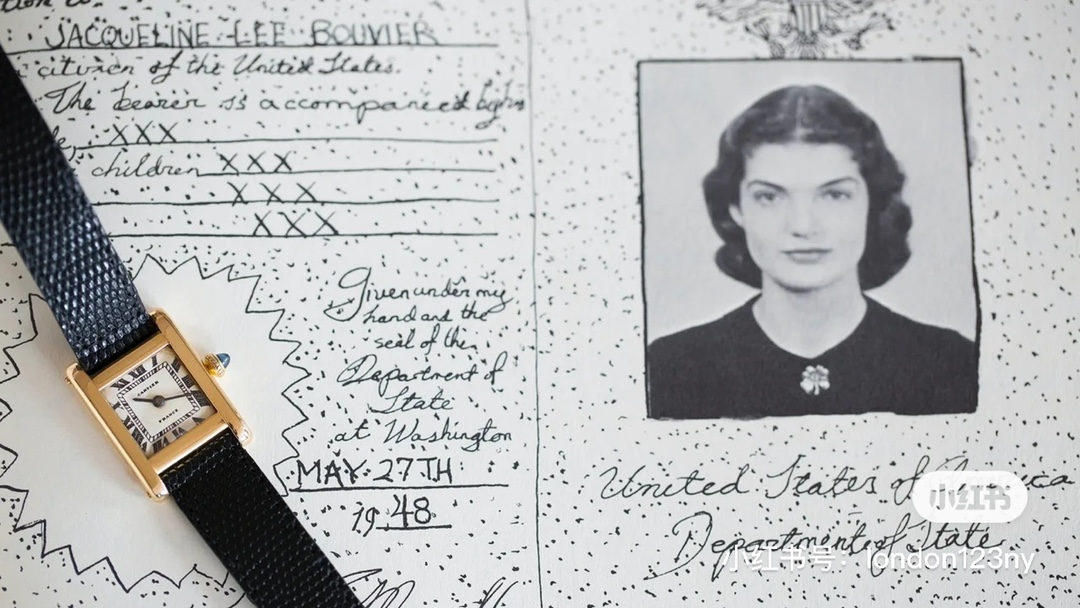 JACQUELINE LEE BOUVIER
citizen of the United States.
The bearer is accompanied by his
XXX
children XXX
XXX
XXX
Given under my
hand and the
seal of the
Department of
State
at Washington
MAY 27TH
19 48
CARTIER
FRANCE
United States of America
Department of State
小红书
小红书号：london123ny